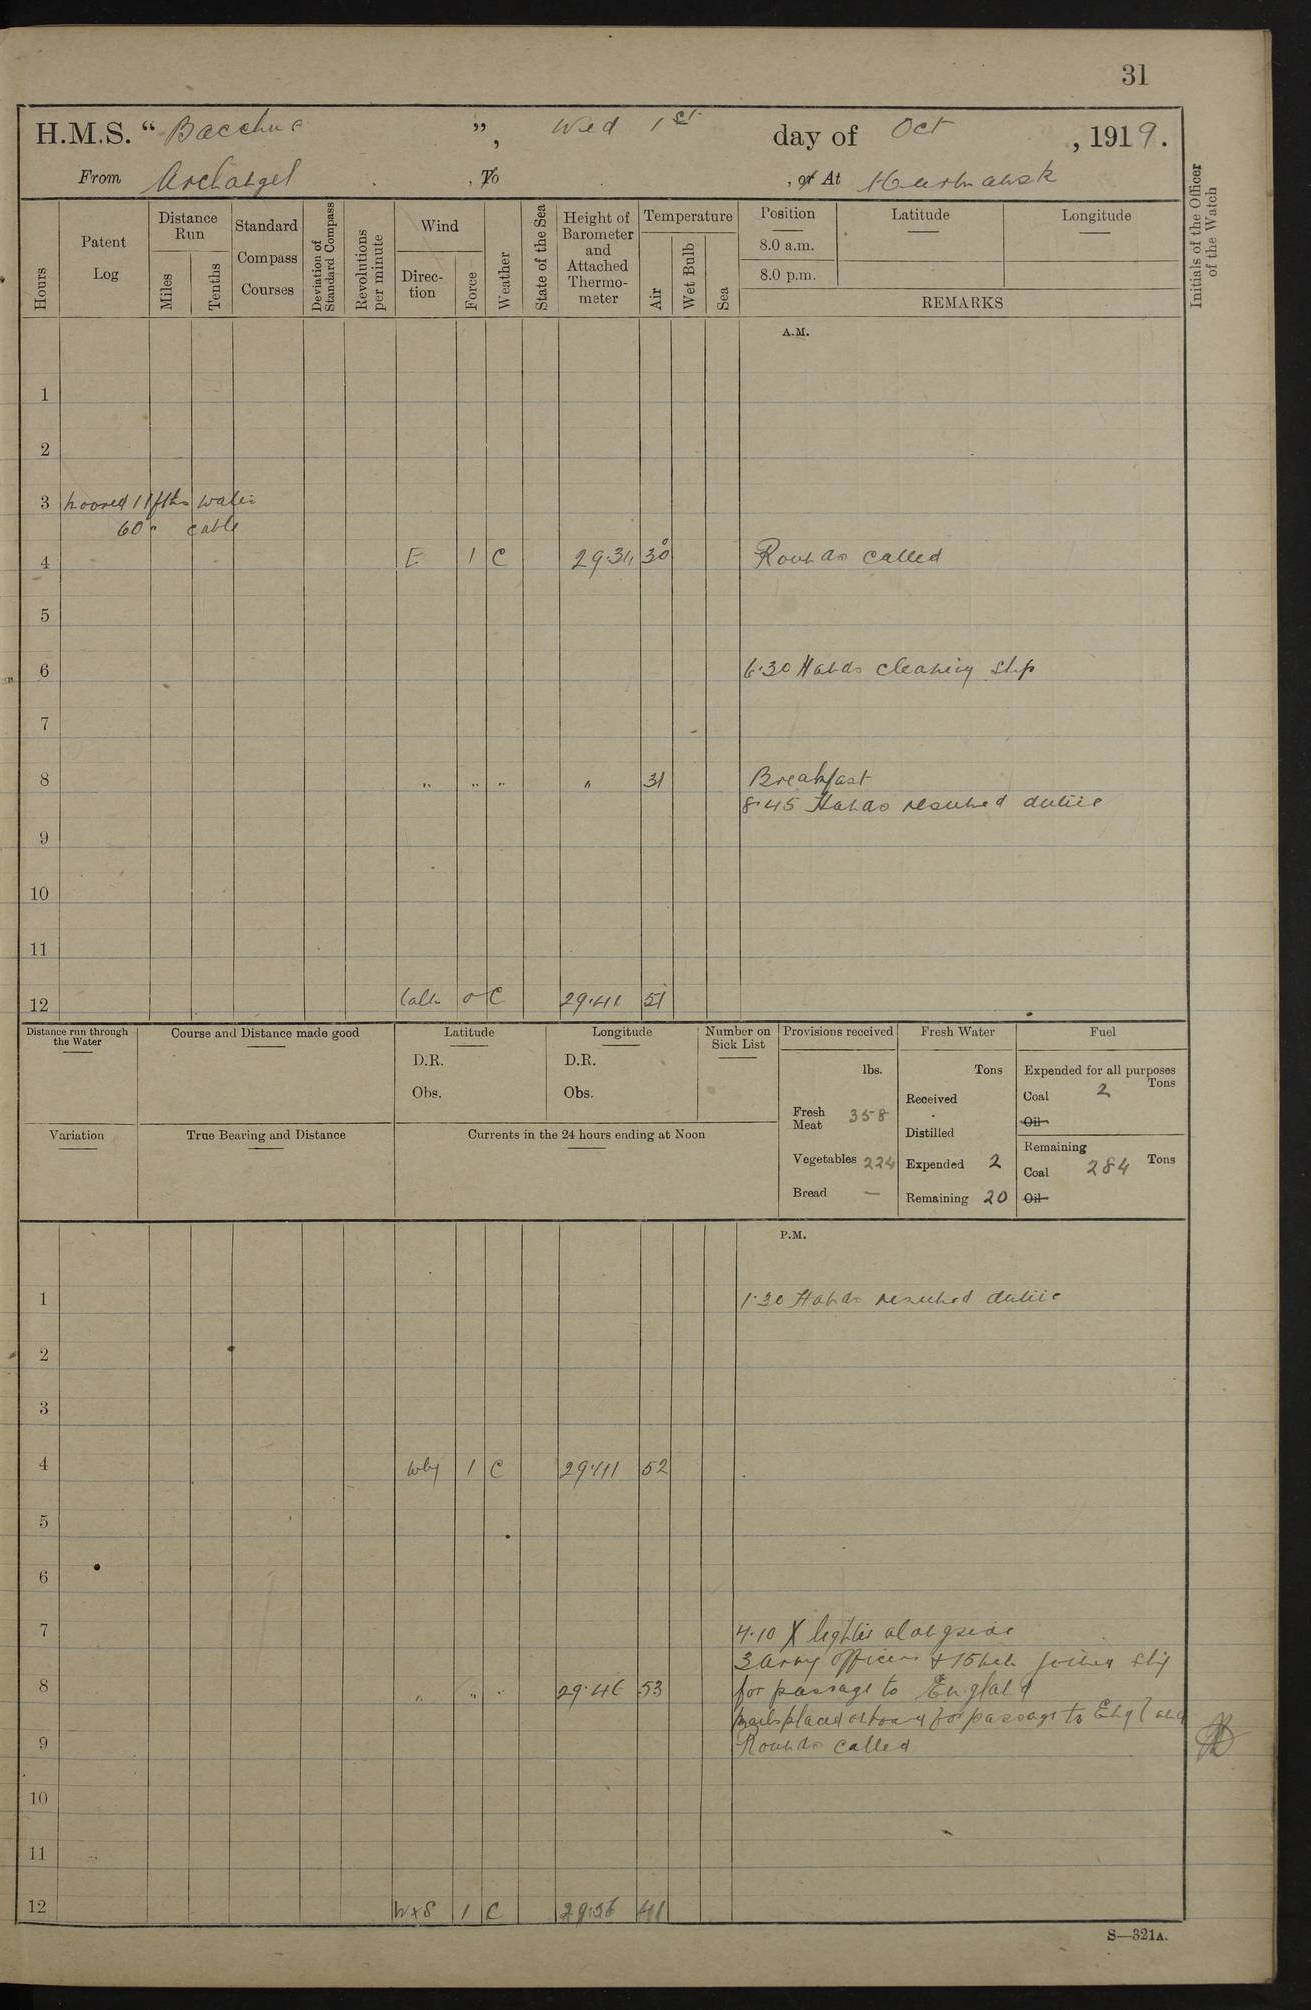 31
H.M.S. “ Bacchus ”, Wed 1st day of Oct , 1919.
From Archangel , To , or At Murmansk
Hours
Patent Log
Distance Run
Miles
Tenths
Standard Compass Courses
Deviation of Standard Compass
Revolutions per minute
Wind
Direction
Force
Weather
State of the Sea
Height of Barometer and Attached Thermometer
Temperature
Air
Wet Bulb
Sea
Position
8.0 a.m.
8.0 p.m.
Latitude
Longitude
REMARKS
Initials of the Officer of the Watch
A.M.
1
2
3 moored 11 fths water
60 " cable
4 E 1 C 29.31 30° Rounds called
5
6 6.30 Hands cleaning ship
7
8 " " " " 31 Breakfast
8.45 Hands resumed duties
9
10
11
12 Calm 0 C 29.41 51
Distance run through the Water
Course and Distance made good
Latitude
D.R.
Obs.
Longitude
D.R.
Obs.
Number on Sick List
Provisions received
lbs.
Fresh Meat 358
Vegetables 224
Bread —
Fresh Water
Tons
Received
Distilled
Expended 2
Remaining 20
Fuel
Expended for all purposes
Tons
Coal 2
Oil
Remaining
Tons
Coal 284
Oil
Variation
True Bearing and Distance
Currents in the 24 hours ending at Noon
P.M.
1 1.30 Hands resumed duties
2
3
4 Wly 1 C 29.41 52
5
6
7 4.10 X lighter alongside
3 Army officers + 15 men joined ship
8 " " " 29.46 53 for passage to England
mails placed onboard for passage to England
9 Rounds called
10
11
12 WxS 1 C 29.56 41
S—321A.